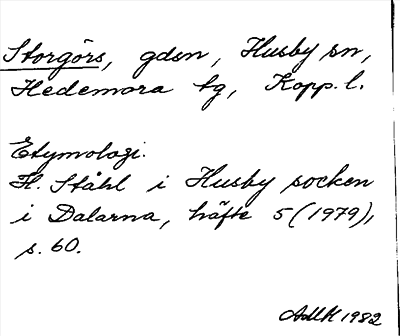 Storgörs, gden, Husby sn,
Hedemora tg, Kopp. l.
Etymologi.
H. Ståhl i Husby socken
i Dalarna, häfte 5 (1979),
s. 60.
AdlK 1982